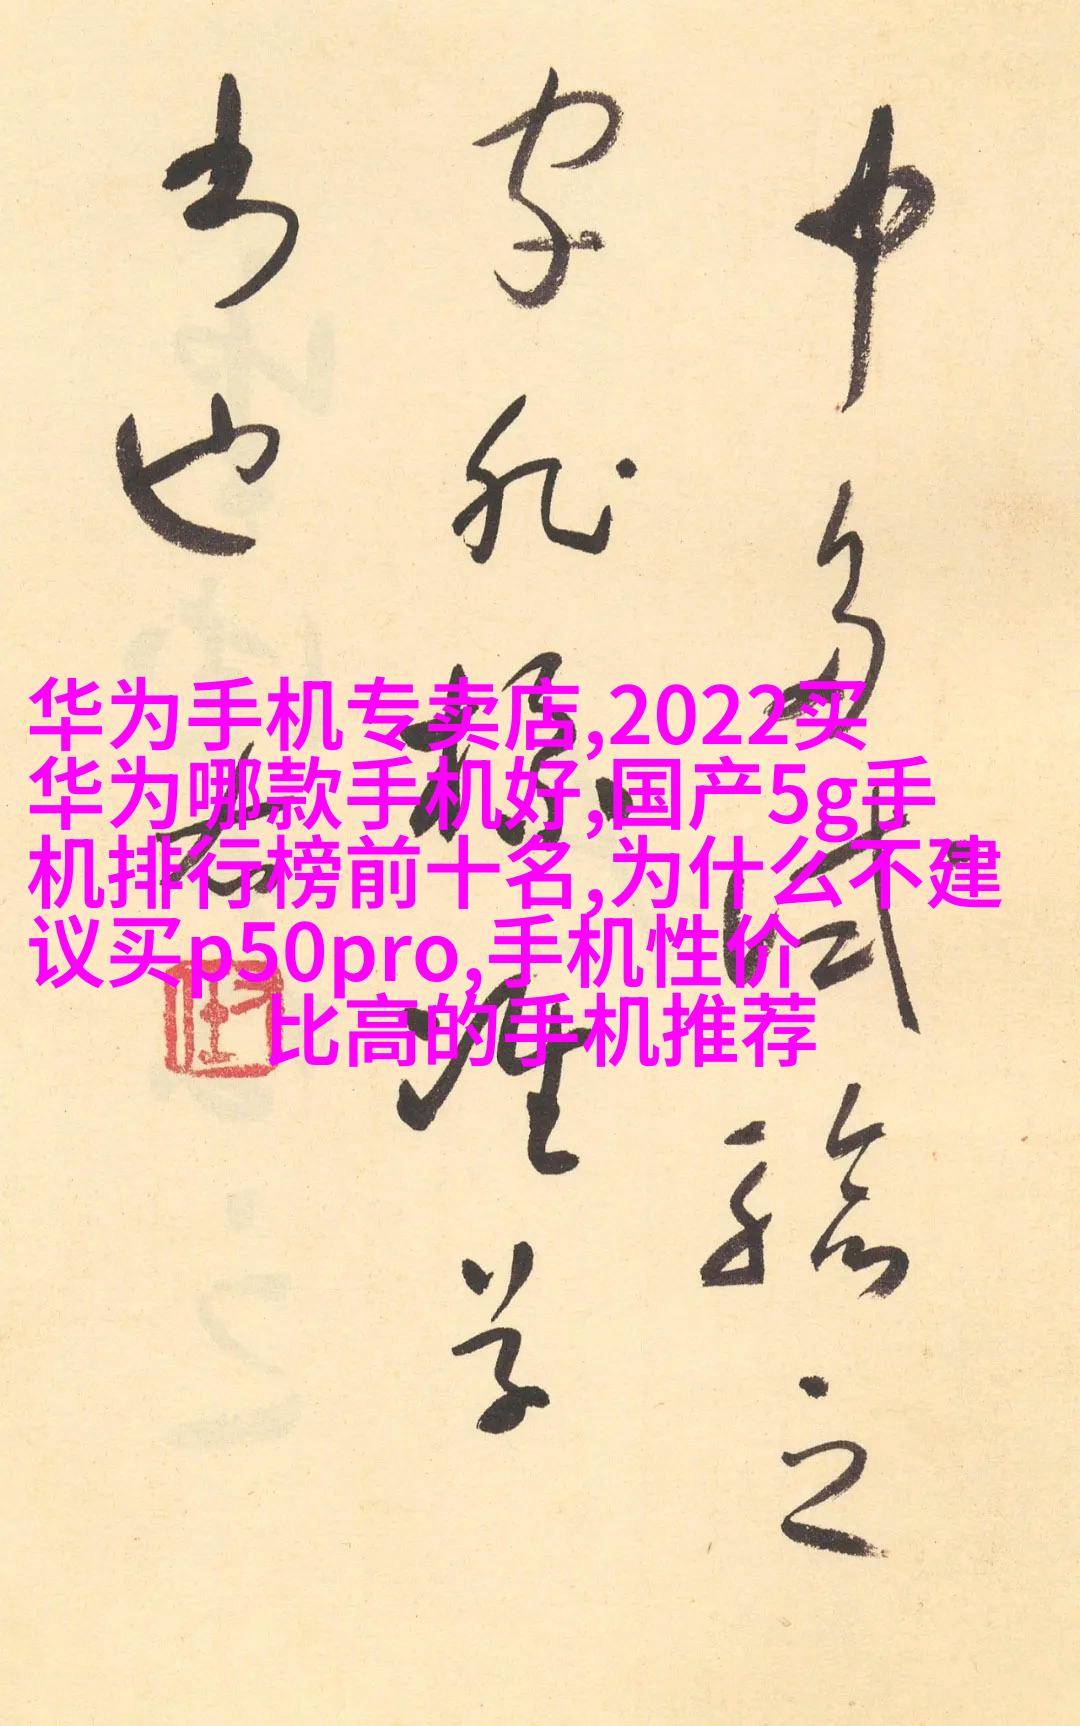 华为手机专卖店,2022买
华为哪款手机好,国产5g手
机排行榜前十名,为什么不建
议买p50pro,手机性价
比高的手机推荐
中多試驗之
字難学
也